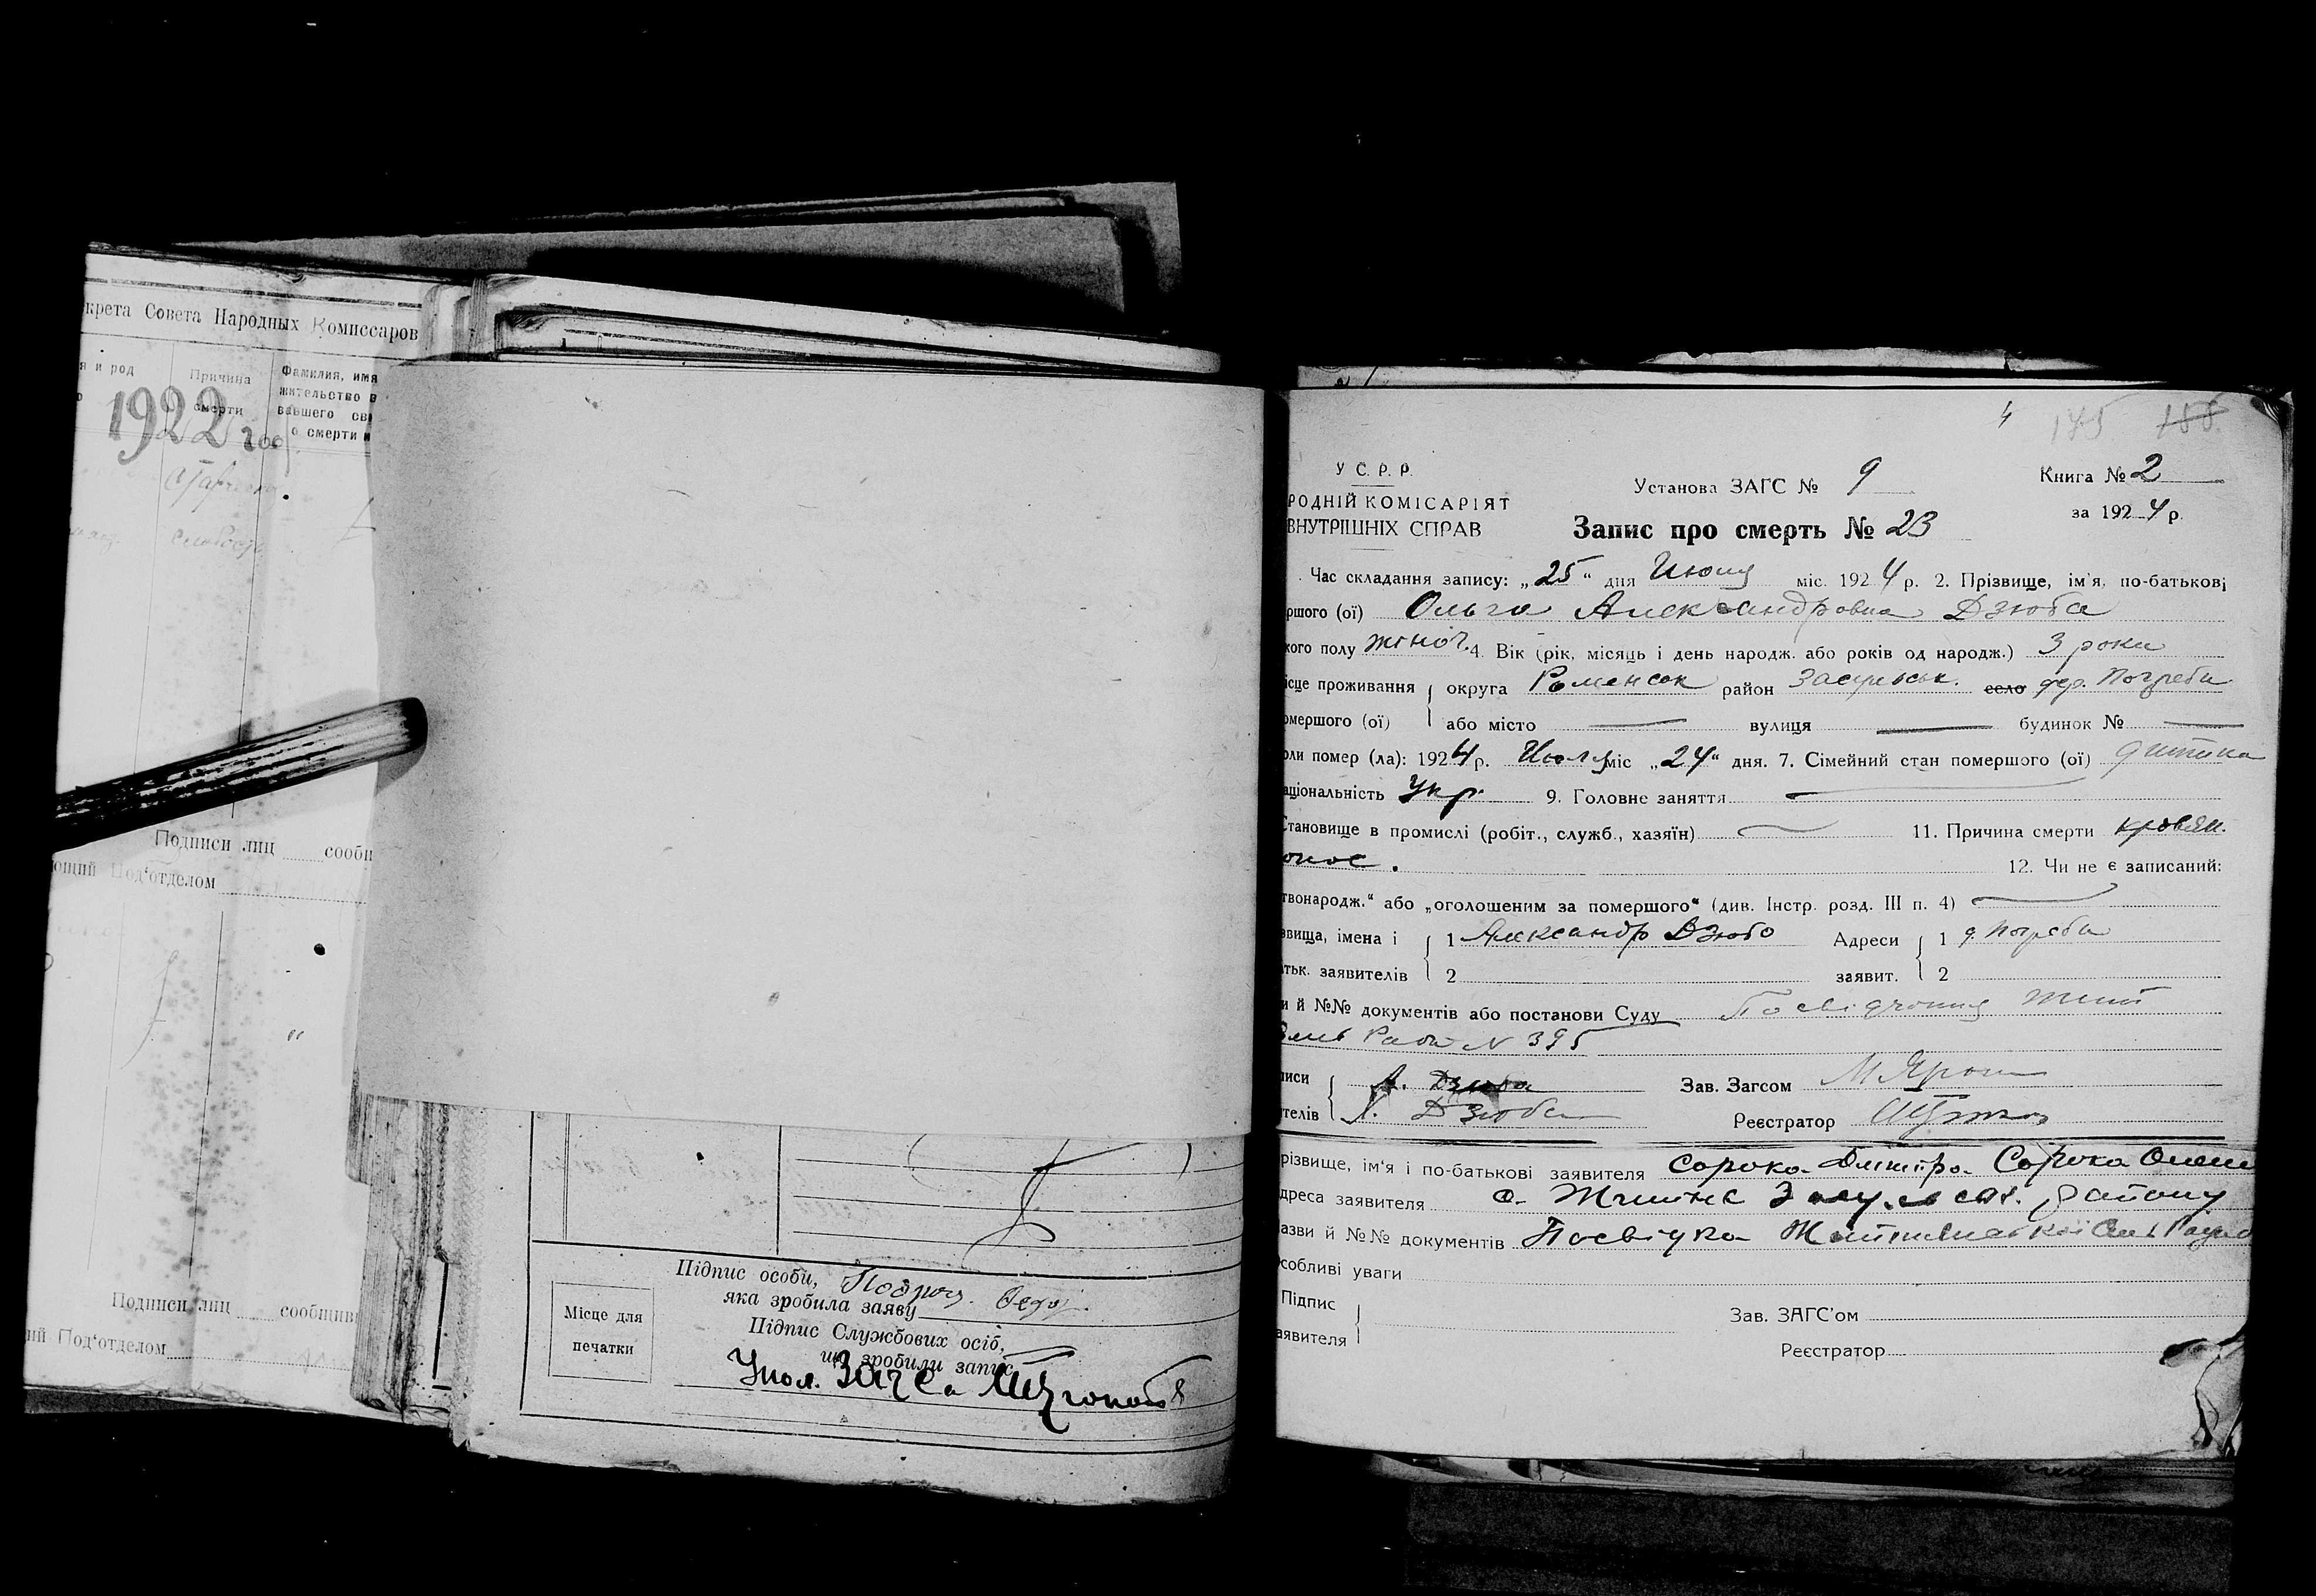 крета Совета Народных Комиссаров
я и род
Причина
смерти
Фамилия, имя
жительство
вавшего
о смерти и
1922 год
Подписи лиц сообщ
ющий Под‘отделом
"
Подписи лиц сообщив
ий Под‘отделом
Підпис особи,
яка зробила заяву
Місце для
печатки
Підпис Службових осіб,
що зробили запис
Упол. Загса
4
145 188
У С. Р. Р.
РОДНІЙ КОМІСАРІЯТ
ВНУТРІШНІХ СПРАВ
Установа ЗАГС № 9
Книга № 2
за 1924 р.
Запис про смерть № 23
Час складання запису: „25“ дня Июля міс. 1924 р. 2. Прізвище, ім'я, по-батькові
ршого (ої) Ольга Александровна Дзюба
кого полу жіноч. 4. Вік (рік, місяць і день народж. або років од народж.) 3 роки
ісце проживання округа Роменськ район Засульськ. село дер. Погреби
омершого (ої) або місто — вулиця — будинок № —
оли помер (ла): 1924 р. Июля міс „24“ дня. 7. Сімейний стан помершого (ої) дитина
аціональність Укр. 9. Головне заняття —
Становище в промислі (робіт., служб., хазяїн) — 11. Причина смерти кровян.
онос. 12. Чи не є записаний:
твонародж.“ або „оголошеним за помершого“ (див. Інстр. розд. III п. 4) —
звища, імена і 1 Александр Дзюбо Адреси 1 д. Погреби
тьк. заявителів 2 заявит. 2
и й №№ документів або постанови Суду Посвідчення
Ради N 395
писи А. Дзюба Зав. Загсом М Ярош
телів Дзюба Реєстратор
різвище, ім‘я і по-батькові заявителя Сорока Дмитро Сорока
дреса заявителя с. району
азви й №№ документів Посвідка
Особливі уваги
Підпис
аявителя
Зав. ЗАГС'ом
Реєстратор